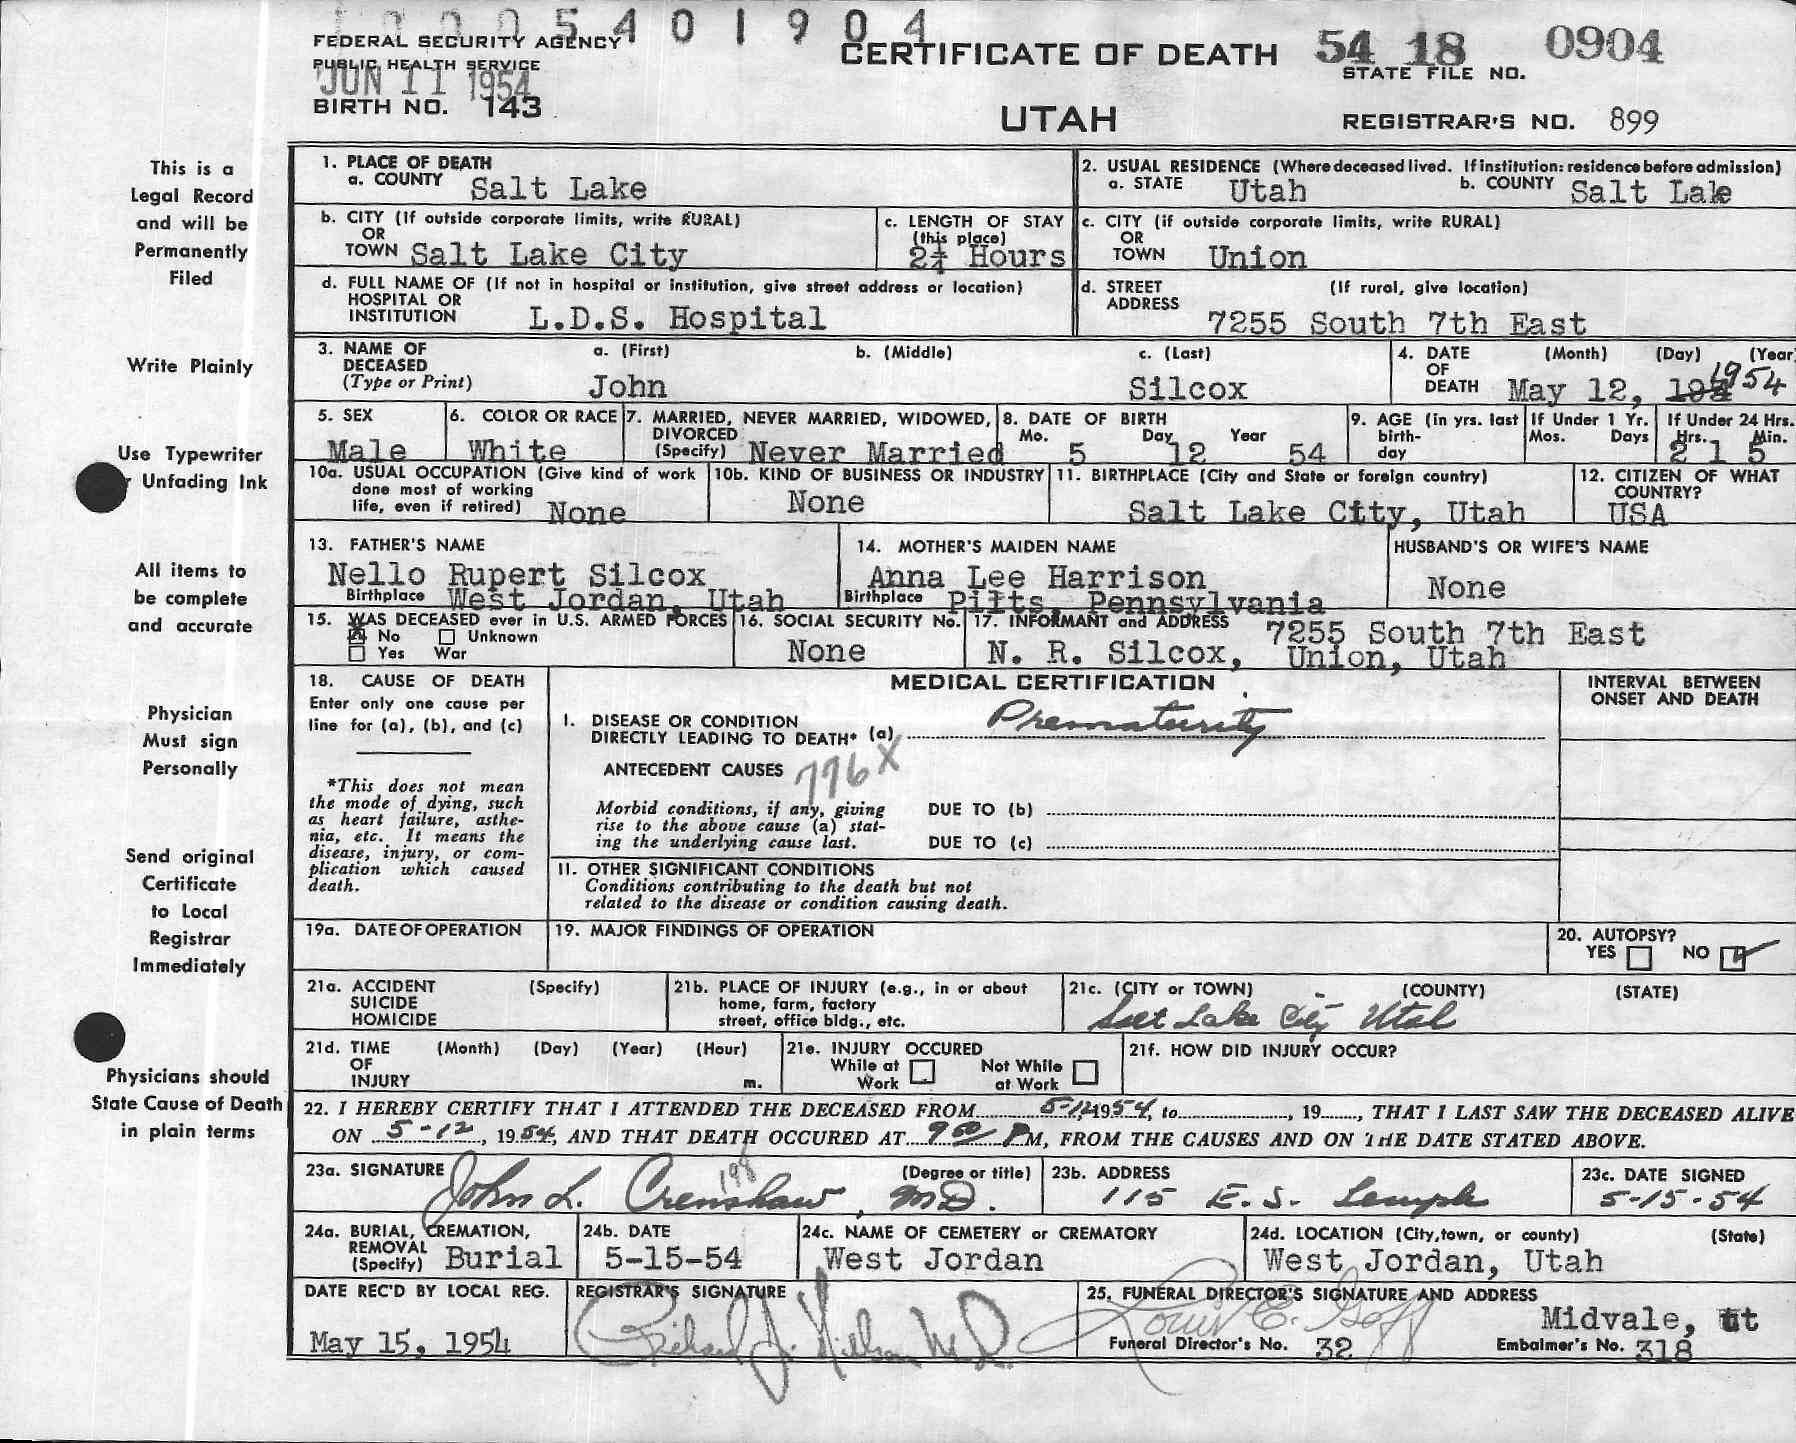 1000540 1904
FEDERAL SECURITY AGENCY
PUBLIC HEALTH SERVICE
JUN 11 1954
BIRTH NO. 143
CERTIFICATE OF DEATH
UTAH
54 18 0904
STATE FILE NO.
REGISTRAR'S NO. 899
This is a
Legal Record
and will be
Permanently
Filed
Write Plainly
Use Typewriter
r Unfading Ink
All items to
be complete
and accurate
Physician
Must sign
Personally
Send original
Certificate
to Local
Registrar
Immediately
Physicians should
State Cause of Death
in plain terms
1. PLACE OF DEATH
a. COUNTY Salt Lake
2. USUAL RESIDENCE (Where deceased lived. If institution: residence before admission)
a. STATE Utah b. COUNTY Salt Lake
b. CITY (If outside corporate limits, write RURAL)
OR
TOWN Salt Lake City
c. LENGTH OF STAY
(this place)
2¼ Hours
c. CITY (if outside corporate limits, write RURAL)
OR
TOWN Union
d. FULL NAME OF (If not in hospital or institution, give street address or location)
HOSPITAL OR
INSTITUTION L.D.S. Hospital
d. STREET (If rural, give location)
ADDRESS
7255 South 7th East
3. NAME OF a. (First) b. (Middle) c. (Last)
DECEASED
(Type or Print) John Silcox
4. DATE (Month) (Day) (Year
OF
DEATH May 12, 1954
5. SEX
Male
6. COLOR OR RACE
White
7. MARRIED, NEVER MARRIED, WIDOWED,
DIVORCED
(Specify) Never Married
8. DATE OF BIRTH
Mo. Day Year
5 12 54
9. AGE (in yrs. last
birth-
day
If Under 1 Yr.
Mos. Days
If Under 24 Hrs.
Hrs. Min.
2 1 5
10a. USUAL OCCUPATION (Give kind of work
done most of working
life, even if retired) None
10b. KIND OF BUSINESS OR INDUSTRY
None
11. BIRTHPLACE (City and State or foreign country)
Salt Lake City, Utah
12. CITIZEN OF WHAT
COUNTRY?
USA
13. FATHER'S NAME
Nello Rupert Silcox
Birthplace West Jordan, Utah
14. MOTHER'S MAIDEN NAME
Anna Lee Harrison
Birthplace Pitts, Pennsylvania
HUSBAND'S OR WIFE'S NAME
None
15. WAS DECEASED ever in U.S. ARMED FORCES
No Unknown
Yes War
16. SOCIAL SECURITY No.
None
17. INFORMANT and ADDRESS 7255 South 7th East
N. R. Silcox, Union, Utah
18. CAUSE OF DEATH
Enter only one cause per
line for (a), (b), and (c)
*This does not mean
the mode of dying, such
as heart failure, asthe-
nia, etc. It means the
disease, injury, or com-
plication which caused
death.
MEDICAL CERTIFICATION
I. DISEASE OR CONDITION
DIRECTLY LEADING TO DEATH* (a) Prematurity
ANTECEDENT CAUSES 776X
Morbid conditions, if any, giving
rise to the above cause (a) stat-
ing the underlying cause last.
DUE TO (b)
DUE TO (c)
II. OTHER SIGNIFICANT CONDITIONS
Conditions contributing to the death but not
related to the disease or condition causing death.
INTERVAL BETWEEN
ONSET AND DEATH
19a. DATE OF OPERATION
19. MAJOR FINDINGS OF OPERATION
20. AUTOPSY?
YES NO
21a. ACCIDENT (Specify)
SUICIDE
HOMICIDE
21b. PLACE OF INJURY (e.g., in or about
home, farm, factory
street, office bldg., etc.
21c. (CITY or TOWN) (COUNTY) (STATE)
Salt Lake City Utah
21d. TIME (Month) (Day) (Year) (Hour)
OF
INJURY m.
21e. INJURY OCCURED
While at Not While
Work at Work
21f. HOW DID INJURY OCCUR?
22. I HEREBY CERTIFY THAT I ATTENDED THE DECEASED FROM 5-12, 1954, to , 19 , THAT I LAST SAW THE DECEASED ALIVE
ON 5-12, 1954, AND THAT DEATH OCCURED AT 9 50 PM, FROM THE CAUSES AND ON THE DATE STATED ABOVE.
23a. SIGNATURE (Degree or title)
John L. Crenshaw, MD.
23b. ADDRESS
115 E. S. Temple
23c. DATE SIGNED
5-15-54
24a. BURIAL, CREMATION,
REMOVAL
(Specify) Burial
24b. DATE
5-15-54
24c. NAME OF CEMETERY or CREMATORY
West Jordan
24d. LOCATION (City,town, or county) (State)
West Jordan, Utah
DATE REC'D BY LOCAL REG.
May 15, 1954
REGISTRAR'S SIGNATURE
25. FUNERAL DIRECTOR'S SIGNATURE AND ADDRESS
Louis E. Goff
Midvale, Ut
Funeral Director's No. 32 Embalmer's No. 318